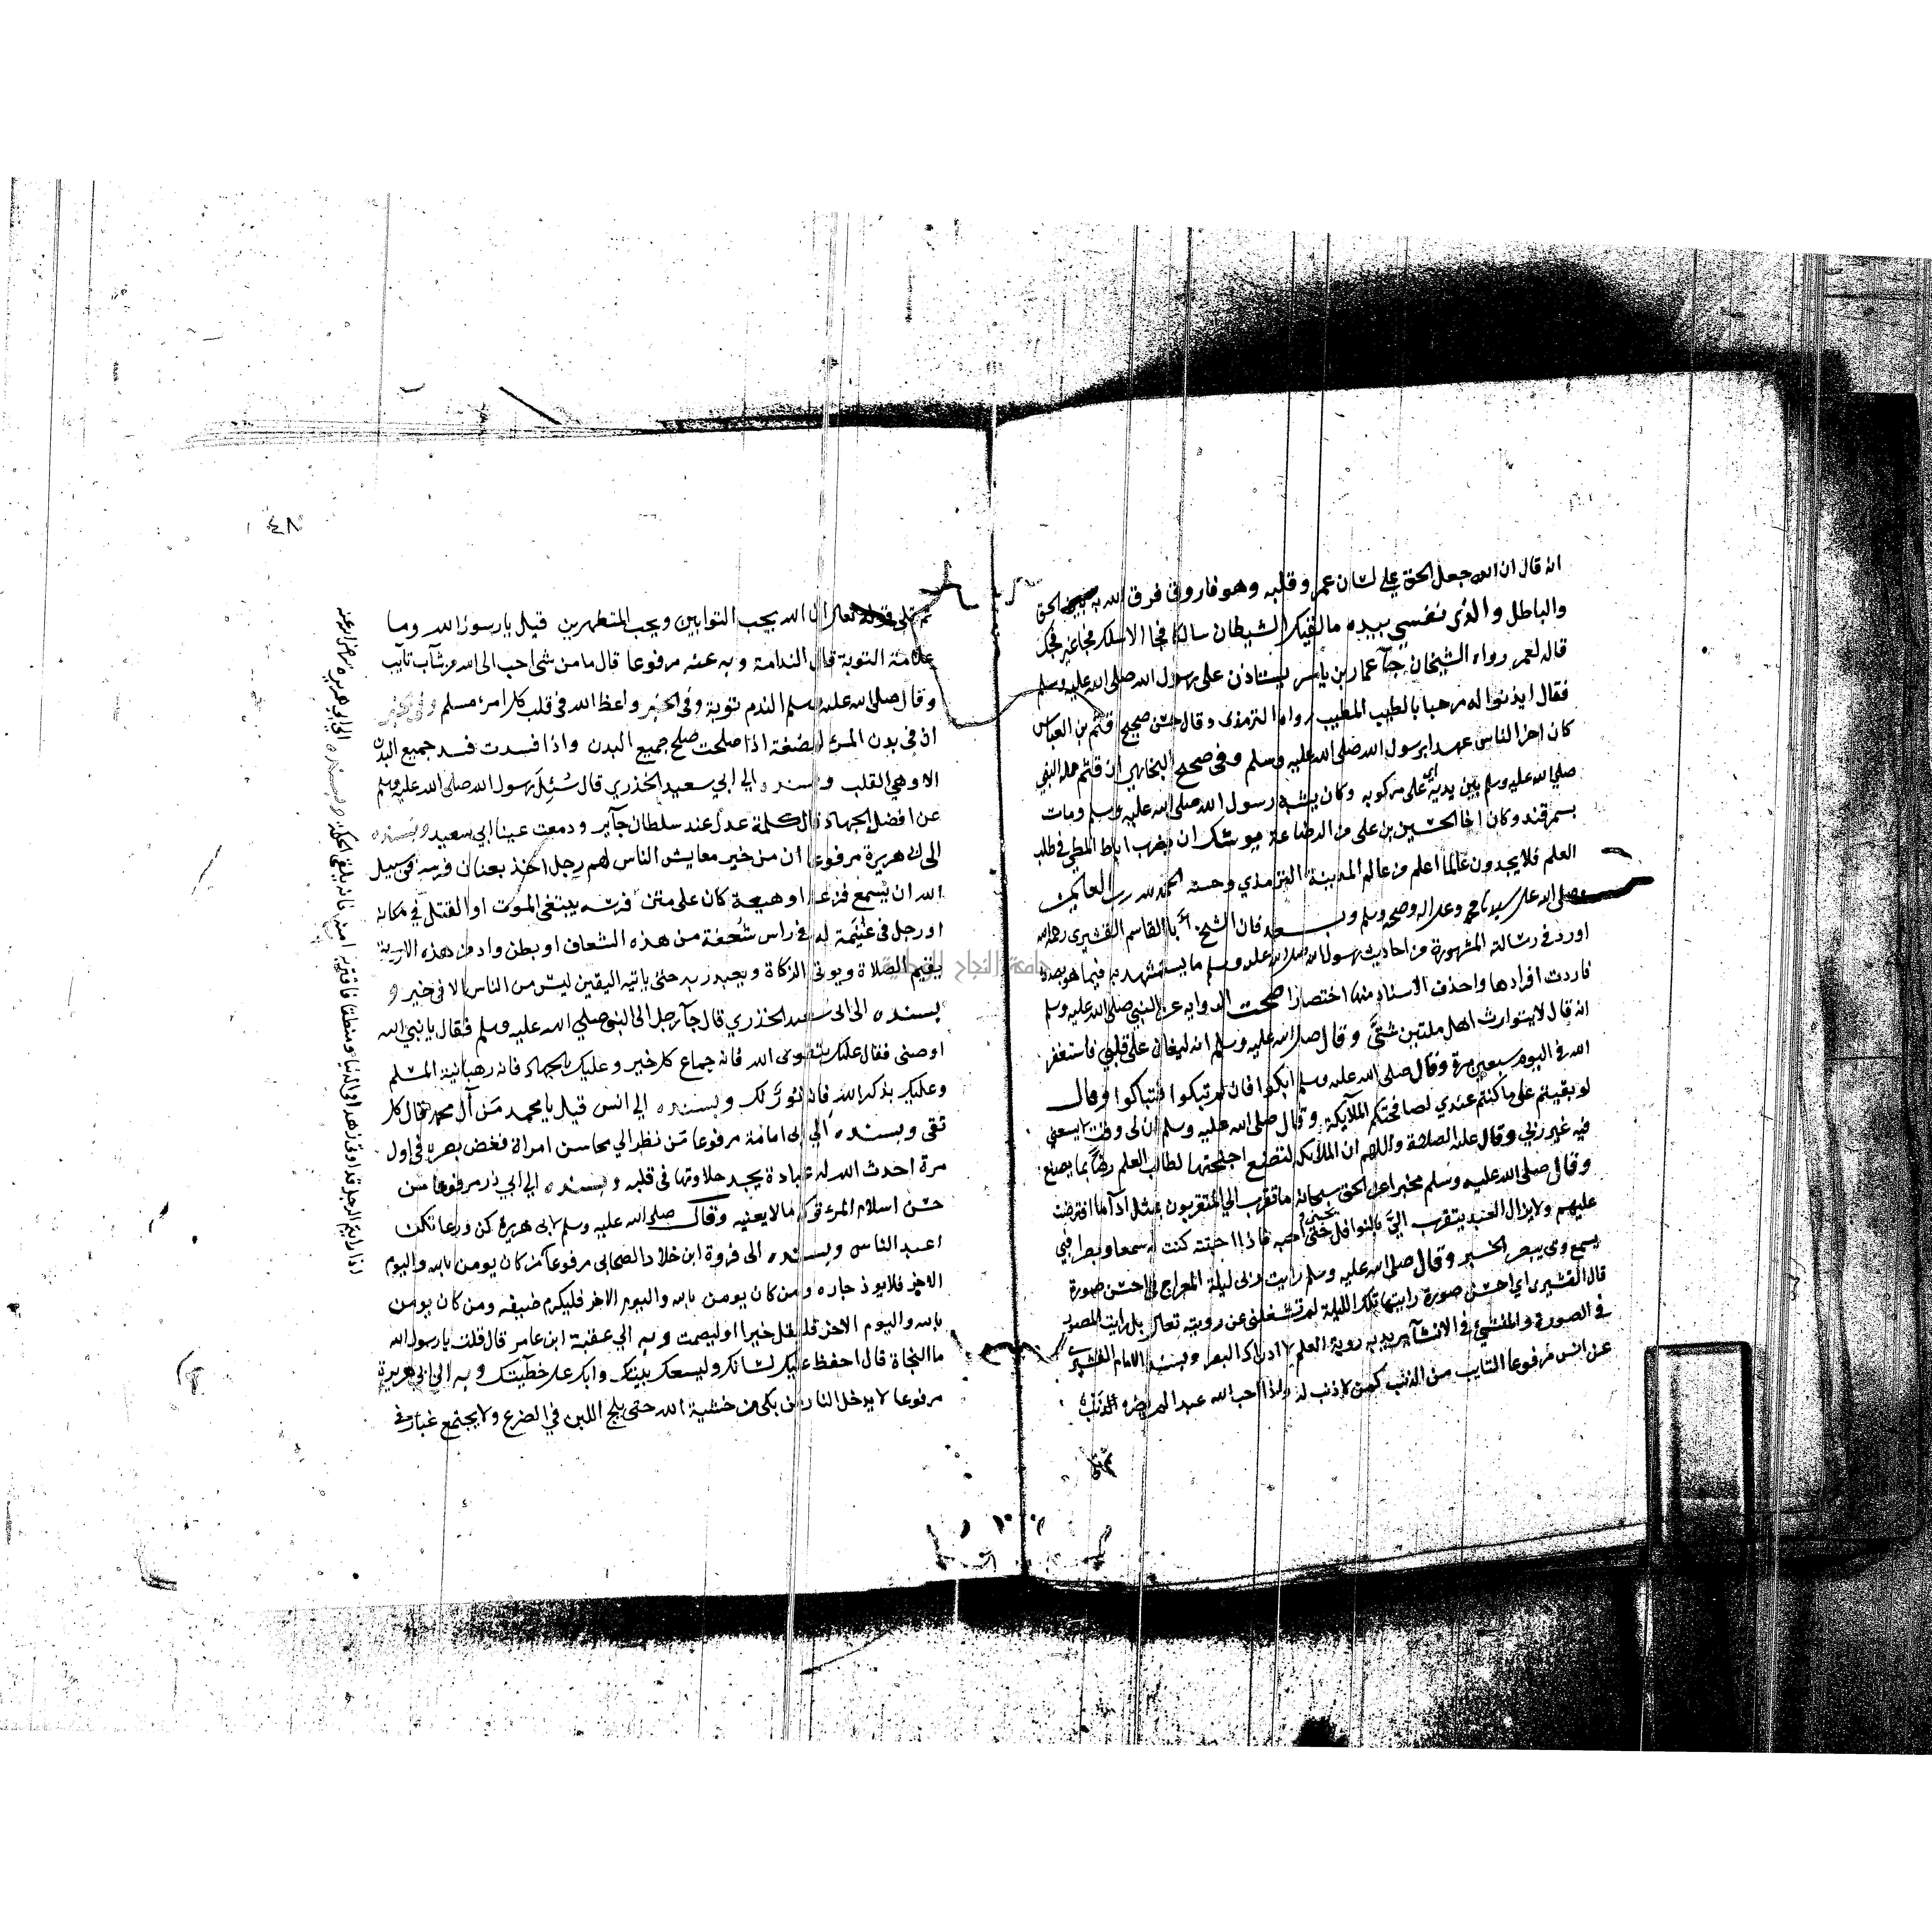 انه قال ان الله جعل الحق على لسان عمر و قلبه وهو فاروق فرق الله به بين الحق
والباطل والذى نفسي بيده ما لقيك الشيطان سالكا فجا الا سلك فجا غير فجك
قاله لعمر رواه الشيخان جآ عمار بن ياسر يستاذن على رسول الله صلى الله عليه وسلم
فقال ايذنوا له مرحبا بالطيب المطيب رواه الترمذى وقال حسن صحيح قثم بن العباس
كان اخر الناس عهدا برسول الله صلى الله عليه وسلم وفى صحيح البخاري ان قثم حمله النبي
صلى الله عليه وسلم بين يديه اي على مركوبه وكان يشبه رسول الله صلى الله عليه وسلم ومات
بسمرقند وكان اخا الحسين بن على من الرضاعة يوشك ان يضرب اباط المطي فى طلب
العلم فلا يجدون عالما اعلم من عالم المدينة الترمذي وحسنه الحمد لله رب العالمين
وصلى الله على سيدنا محمد وعلى اله وصحبه وسلم وبعد فان الشيخ ابا القاسم القشيرى رحمه الله
اورد فى رسالته المشهورة من احاديث رسول الله صلى الله عليه وسلم ما يستشهد به فيما هو بصدده
فاردت افرادها واحذف الاسناد منها اختصارا صحت الروايه عن النبي صلى الله عليه وسلم
انه قال لا يتوارث اهل ملتين شتى وقال صلى الله عليه وسلم انه ليغان على قلبي فاستغفر
الله فى اليوم سبعين مرة وقال صلى الله عليه وسلم ابكوا فان لم تبكوا فتباكوا وقال
لو بقيتم على ما كنتم عندي لصافحتكم الملآيكة وقال صلى الله عليه وسلم ان لى وقت لا يسعني
فيه غير ربي وقال عليه الصلاة والسلام ان الملآيكة لتضع اجنحتها لطالب العلم رضًا بما يصنع
وقال صلى الله عليه وسلم مخبرا عن الحق سبحانه ما تقرب الي المتقربون بمثل ادآ ما افترضت
عليهم ولا يزال العبد يتقرب اليَّ بالنوافل حتى احبه فاذا احببته كنت له سمعا وبصرا فبي
يسمع وبي يبصر الخبر وقال صلى الله عليه وسلم رايت ربى ليلة المعراج في احسن صورة
قال القشيرى اي احسن صورة رايتها تلك الليلة لم تشغلنى عن رويته تعالى بل رايت المصور
فى الصورة والمنشئ فى الانشآ يريد به روية العلم لا ادراك البصر وبسند الامام القشيرى
عن انس مرفوعا التايب من الذنب كمن لا ذنب له واذا احب الله عبدا لم يضره الذنب
ثم تلى
٤٨
ثم تلى قوله تعالى ان الله يحب التوابين ويحب المتطهرين قيل يا رسول الله وما
علامة التوبة قال الندامة وبه عنه مرفوعا قال ما من شى احب الى الله من شآب تآيب
وقال صلى الله عليه وسلم الندم توبة وفى الخبر واعظ الله فى قلب كل امرئ مسلم وفى الخبر
ان فى بدن المرء لمضغة اذا صلحت صلح جميع البدن واذا فسدت فسد جميع البدن
الا وهي القلب وبسنده الى ابي سعيد الخدري قال سُئِلَ رسول الله صلى الله عليه وسلم
عن افضل الجهاد قال كلمة عدل عند سلطان جآير ودمعت عينا ابي سعيد وبسنده
الى ابى هريرة مرفوعا ان من خير معايش الناس لهم رجل اخذ بعنان فرسه فى سبيل
الله ان يسمع فزعة او هيعة كان على متن فرسه يبتغى الموت او القتل في مكانه
او رجل فى غُنَيمة له فى راس شَعَفة من هذه الشعاف او بطن واد من هذه الاودية
يقيم الصلاة ويوتى الزكاة ويعبد ربه حتى ياتيه اليقين ليس من الناس الا فى خير و
بسنده الى ابى سعيد الخدري قال جآ رجل الى النبى صلى الله عليه وسلم فقال يا نبي الله
اوصنى فقال عليك بتقوى الله فانه جماع كل خير وعليك بالجهاد فانه رهبانية المسلم
وعليك بذكر الله فانه نورٌ لك وبسنده الي انس قيل يا محمد مَن آل محمد فقال كل
تقى وبسنده الي ابى امامة مرفوعا من نظر الي محاسن امراة فغض بصره في اول
مرة احدث الله له عبادة يجد حلاوتها فى قلبه وبسنده الي ابي ذر مرفوعا من
حسن اسلام المرء تركه ما لا يعنيه وقال صلى الله عليه وسلم لابى هريرة كن ورعا تكن
اعبد الناس وبسنده الى فروة ابن خلاد الصحابي مرفوعا من كان يومن بالله واليوم
الاخر فلا يوذ جاره ومن كان يومن بالله واليوم الاخر فليكرم ضيفه ومن كان يومن
بالله واليوم الاخر فليقل خيرا او ليصمت وبه الى عقبة ابن عامر قال قلت يا رسول الله
ما النجاة قال احفظ عليك لسانك وليسعك بيتك وابك على خطيئتك وبه الي ابى هريرة
مرفوعا لا يدخل النار من بكى من خشية الله حتى يلج اللبن في الضرع ولا يجتمع غبار فى
اذا رايتم الرجل قد اوتى زهدا فى الدنيا ومنطقا فاقتربوا منه فانه يلقى الحكمة وبسنده الى ابي هريره
جامعة النجاح الوطنية